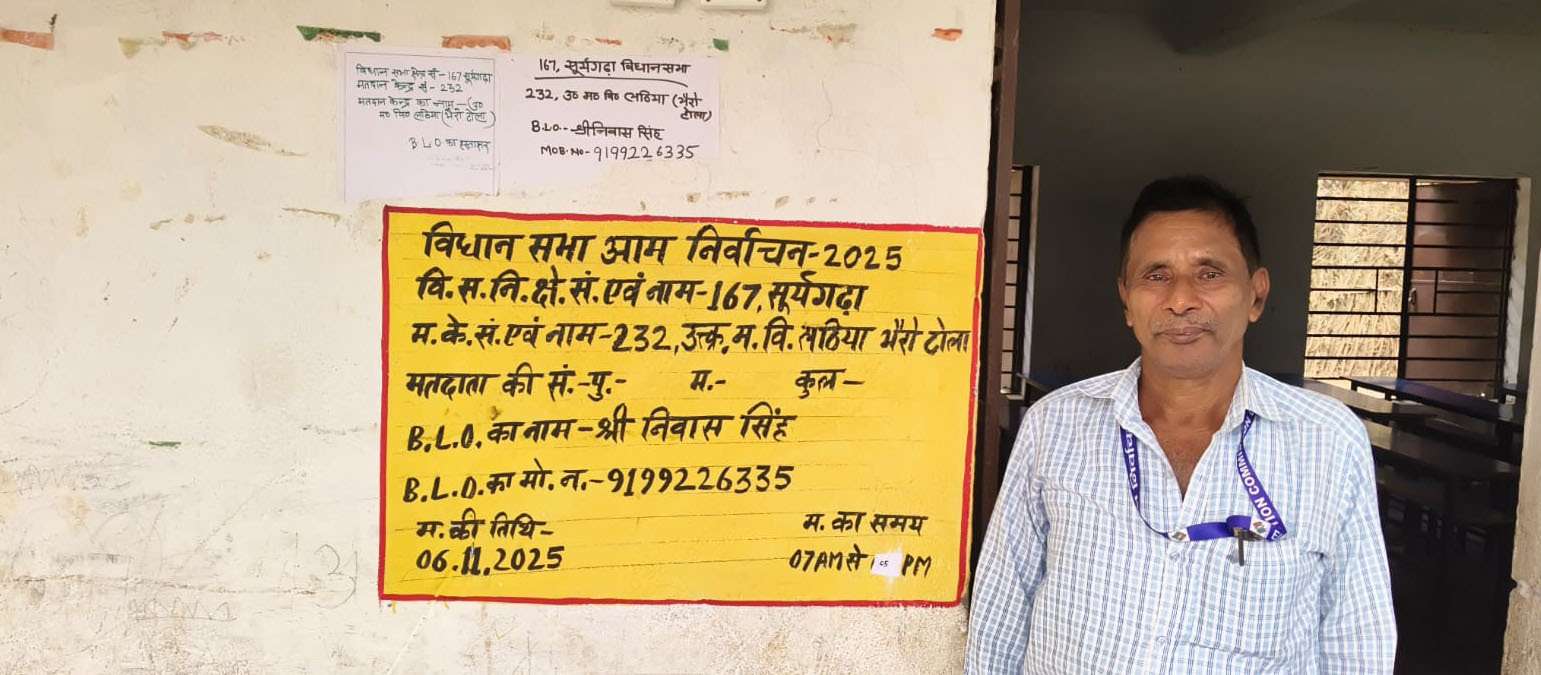 विधान सभा क्षेत्र सं-167 सूर्यगढ़ा
मतदान केन्द्र सं- 232
मतदान केन्द्र का नाम-(उ०
म० वि० लठिया (भैरो टोला)
B.L.O का हस्ताक्षर
167, सूर्यगढ़ा विधानसभा
232, उ० म० वि० लठिया (भैरो
टोला)
B.L.O.- श्रीनिवास सिंह
MOB.NO- 9199226335
विधान सभा आम निर्वाचन-2025
वि.स.नि.क्षे.सं.एवं नाम-167,सूर्यगढ़ा
म.के.सं.एवं नाम-232,उत्क्र.म.वि.लठिया भैरो टोला
मतदाता की सं.-पु.- म.- कुल-
B.L.O. का नाम-श्री निवास सिंह
B.L.O.का मो.न.-9199226335
म.की तिथि- म.का समय
06.11.2025 07AM से 05 PM
TION COMMI
E